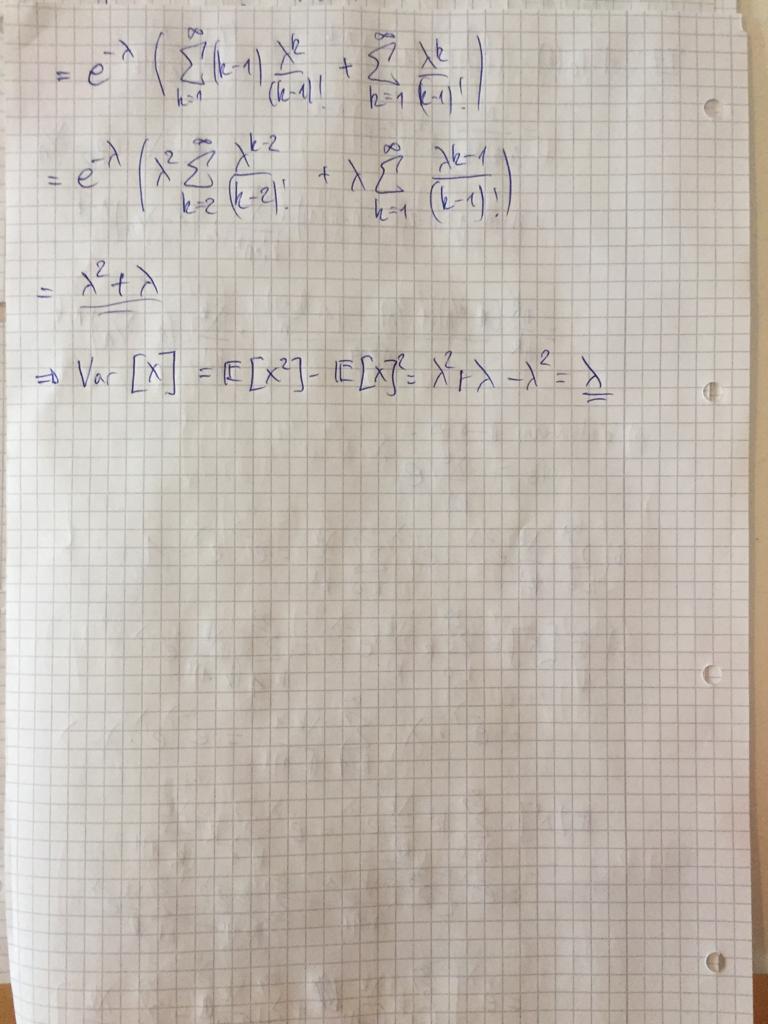 = e^{-λ} ( \sum_{k=1}^{∞} (k-1) \frac{λ^k}{(k-1)!} + \sum_{k=1}^{∞} \frac{λ^k}{(k-1)!} )
= e^{-λ} ( λ^2 \sum_{k=2}^{∞} \frac{λ^{k-2}}{(k-2)!} + λ \sum_{k=1}^{∞} \frac{λ^{k-1}}{(k-1)!} )
= λ^2 + λ
⇒ Var [X] = 𝔼[X^2] - 𝔼[X]^2 = λ^2 + λ - λ^2 = λ